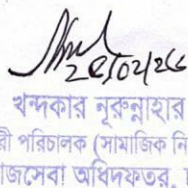 খন্দকার নূরুন্নাহার
রী পরিচালক (সামাজিক নি
জসেবা অধিদফতর,